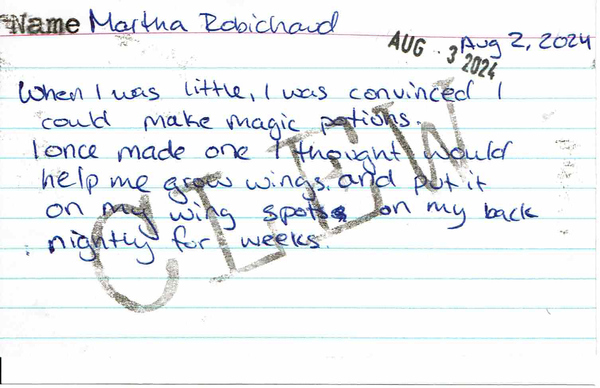 Name Martha Robichaud
AUG 3 2024
Aug 2, 2024
When I was little, I was convinced I
could make magic potions.
I once made one I thought would
help me grow wings. and put it
on my wing spots on my back
nightly for weeks.
CLEW